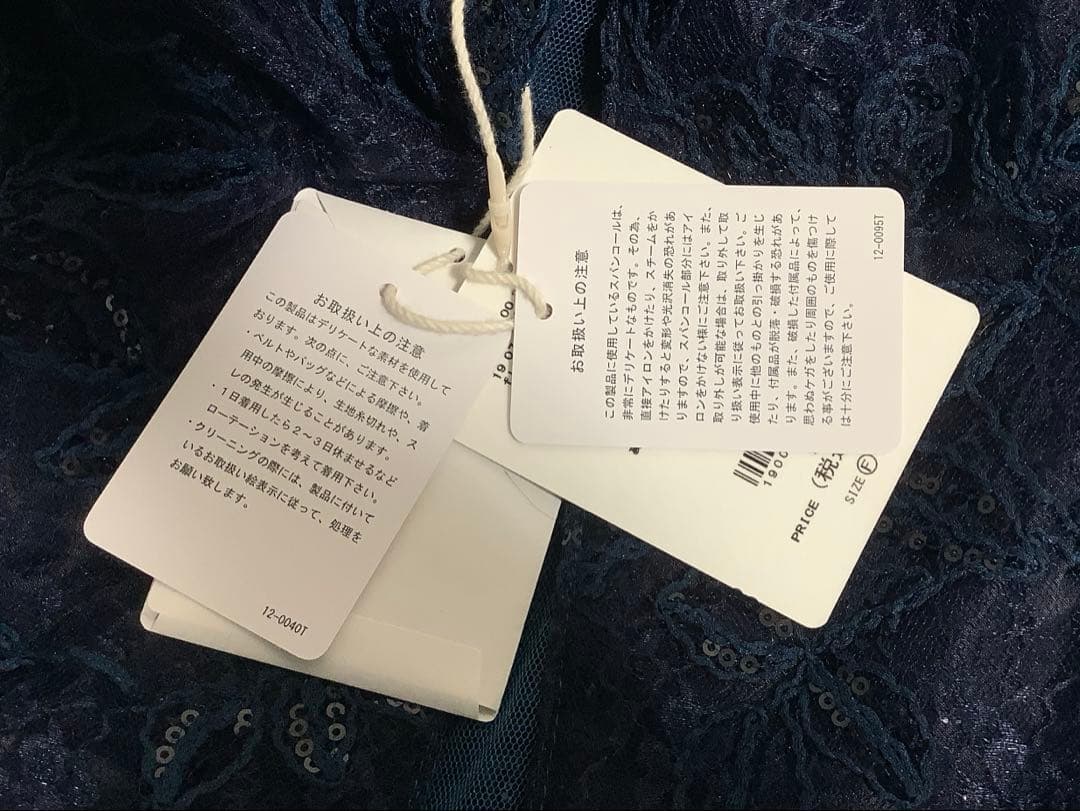 お取扱い上の注意
この製品はデリケートな素材を使用して
おります。次の点に、ご注意下さい。
・ベルトやバッグなどによる摩擦や、着
用中の摩擦により、生地糸切れや、ス
レの発生が生じることがあります。
・1日着用したら2〜3日休ませるなど
ローテーションを考えて着用下さい。
・クリーニングの際には、製品に付いて
いるお取扱い絵表示に従って、処理を
お願い致します。
12-0040T
お取扱い上の注意
この製品に使用しているスパンコールは、
非常にデリケートなものです。その為、
直接アイロンをかけたり、スチームをか
けたりすると変形や光沢消失の恐れがあ
りますので、スパンコール部分にはアイ
ロンをかけない様にご注意下さい。また、
取り外しが可能な場合は、取り外して取
り扱い表示に従ってお取扱い下さい。ご
使用中に他のものとの引っ掛かりを生じ
たり、付属品が脱落・破損する恐れがあ
ります。また、破損した付属品によって、
思わぬケガをしたり周囲のものを傷つけ
る事がございますので、ご使用に際して
は十分にご注意下さい。
12-0095T
1900
PRICE (税
SIZE F